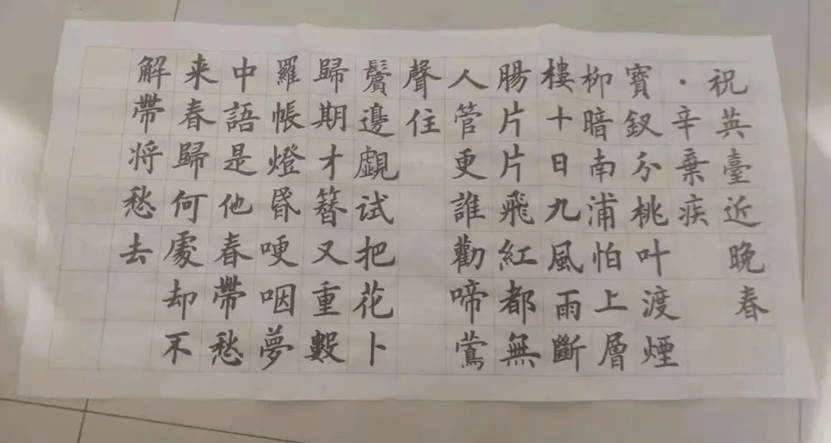 祝英臺近晚春
·辛棄疾
寶釵分桃叶渡煙
柳暗南浦怕上層
樓十日九風雨斷
腸片片飛紅都無
人管更誰勸啼鶯
聲住
鬢邊覷试把花卜
歸期才簪又重數
羅帳燈昏哽咽夢
中語是他春帶愁
来春歸何處却不
解帶将愁去